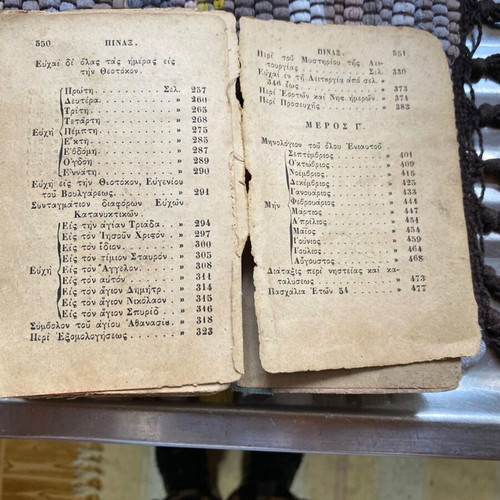 550 ΠΙΝΑΞ.
Εὐχαὶ δι' ὅλας τὰς ἡμέρας εἰς
τὴν Θεοτόκον.
Πρώτη . . . Σελ. 257
Δευτέρα . . . » 260
Τρίτη . . . » 265
Τετάρτη . . . » 268
Εὐχὴ Πέμπτη . . . » 275
Ἕκτη . . . » 285
Ἑβδόμη . . . » 287
Ὀγδόη . . . » 289
Ἐννάτη . . . » 290
Εὐχὴ εἰς τὴν Θεοτόκον, Εὐγενίου
τοῦ Βουλγάρεως. . . . » 291
Συνταγμάτιον διαφόρων Εὐχῶν
Κατανυκτικῶν
Εἰς τὴν ἁγίαν Τριάδα. . . » 294
Εἰς τὸν Ἰησοῦν Χριστόν. » 297
Εἰς τὸν ἴδιον . . . » 300
Εἰς τὸν τίμιον Σταυρόν. » 305
Εὐχὴ Εἰς τὸν Ἄγγελον. . . » 308
Εἰς τὸν αὐτόν . . . » 311
Εἰς τὸν ἅγιον Δημήτρ. » 314
Εἰς τὸν ἅγιον Νικόλαον » 315
Εἰς τὸν ἅγιον Σπυρίδ . » 316
Σύμβολον τοῦ ἁγίου Ἀθανασίυ. » 318
Περὶ Ἐξομολογήσεως. . . » 323
ΠΙΝΑΞ. 551
Περὶ τοῦ Μυστηρίου τῆς Λει-
τουργίας . . . Σελ. 330
Εὐχαὶ ἐν τῇ Λειτουργίᾳ ἀπὸ σελ.
346 ἕως . . . » 373
Περὶ Ἑορτῶν καὶ Νησ. ἡμερῶν. » 374
Περὶ Προσευχῆς . . . » 383
ΜΕΡΟΣ Γ'.
Μηνολόγιον τοῦ ὅλου Ἐνιαυτοῦ
Σεπτέμβριος . . . » 401
Ὀκτώβριος . . . » 409
Νοέμβριος . . . » 416
Δεκέμβριος . . . » 425
Ἰανουάριος . . . » 433
Μὴν Φεβρουάριος . . . » 444
Μάρτιος . . . » 447
Ἀπρίλιος . . . » 451
Μάϊος . . . » 454
Ἰούνιος . . . » 459
Ἰούλιος . . . » 464
Αὔγουστος . . . » 468
Διάταξις περὶ νηστείας καὶ κα-
ταλύσεως . . . » 473
Πασχάλια Ἐτῶν 54 . . . » 477